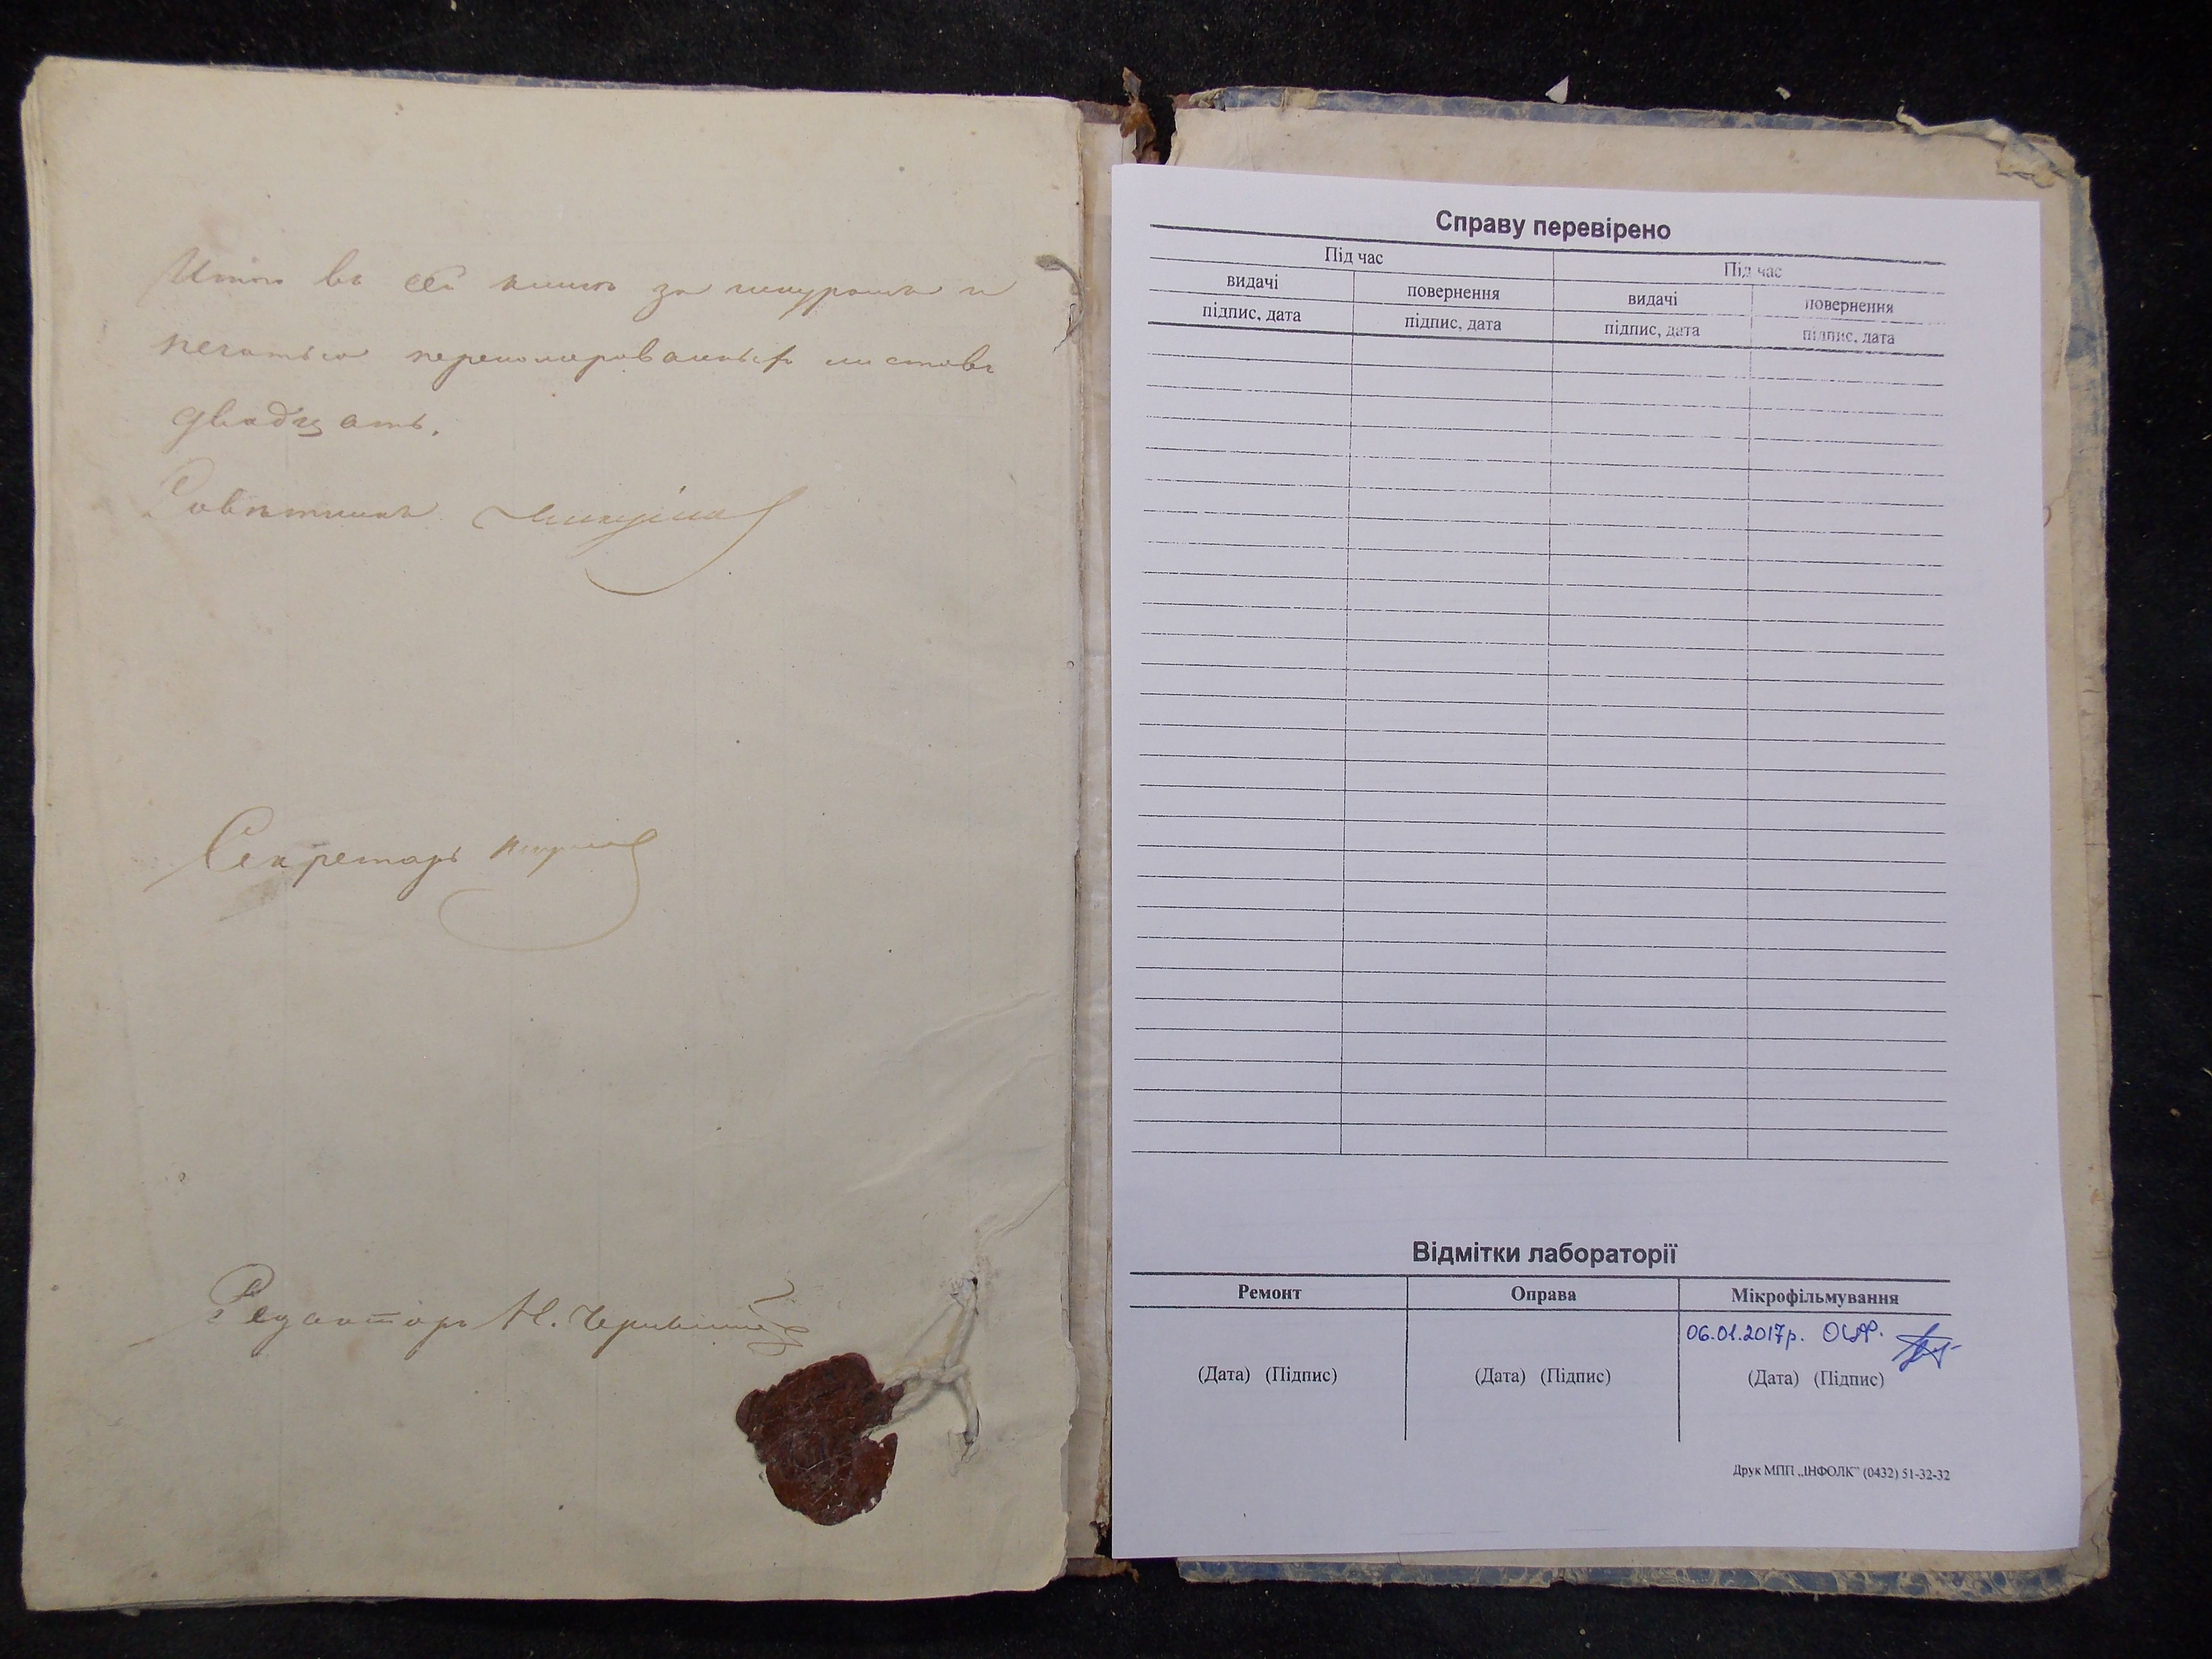 Итого въ сей книгѣ за шнуромъ и
печатью перенумерованныхъ листовъ
двадцать.
Совѣтникъ
Секретарь
Редакторъ Н.
Справу перевірено
Під час Під час
видачі повернення видачі повернення
підпис, дата підпис, дата підпис, дата підпис, дата
Відмітки лабораторії
Ремонт Оправа Мікрофільмування
06.01.2017р.
(Дата) (Підпис) (Дата) (Підпис) (Дата) (Підпис)
Друк МПП „ІНФОЛК” (0432) 51-32-32